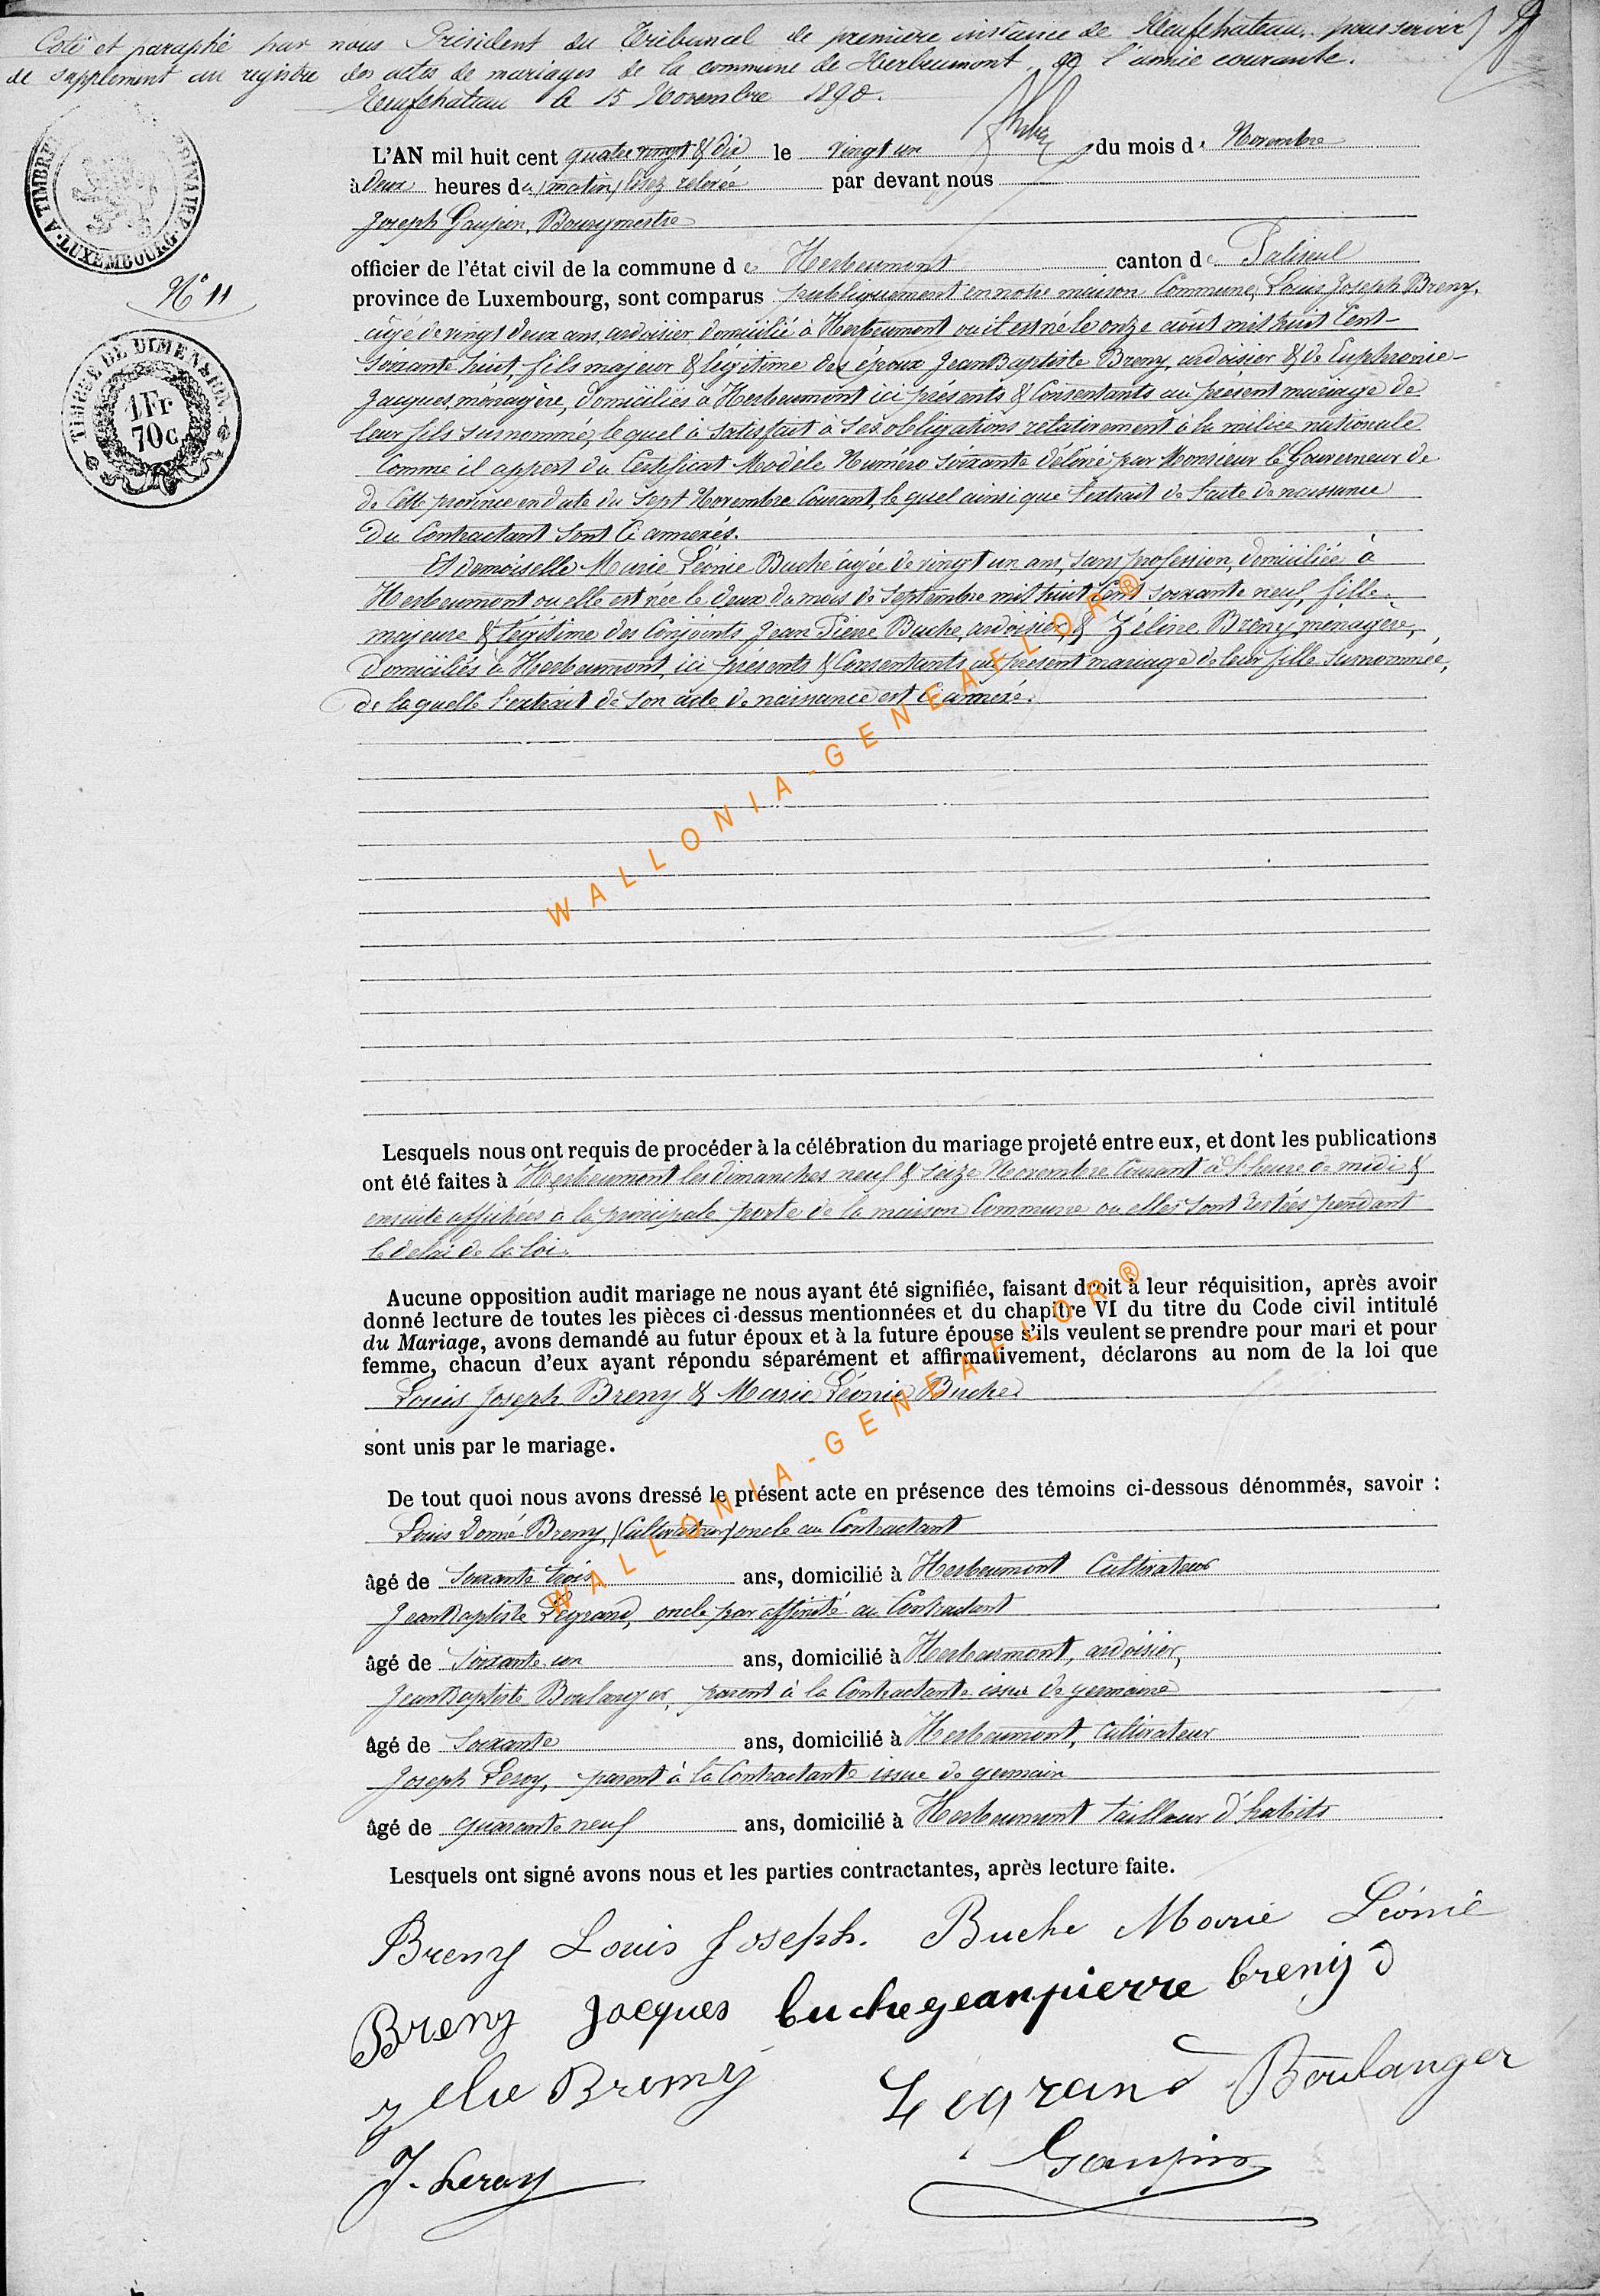 Coté et paraphé par nous Président du Tribunal de première instance de Neufchateau, pour servir
de supplément au registre des actes de mariages de la commune de Herbeumont, l'année courante.
Neufchateau le 15 Novembre 1890.
A TIMBRE
LUXEMBOURG
L'AN mil huit cent quatre vingt & dix le vingt un du mois de Novembre
à deux heures du (matin) lisez relevée par devant nous
Joseph Gaupin, Bourgmestre
officier de l'état civil de la commune de Herbeumont canton de Paliseul
N° 11
province de Luxembourg, sont comparus publiquement en notre maison Commune, Louis Joseph Breny,
âgé de vingt deux ans, ardoisier, domicilié à Herbeumont où il est né le onze août mil huit Cent
TIMBRE DE DIMENSION
1 Fr
70 c
soixante huit, fils majeur & légitime des époux Jean Baptiste Breny, ardoisier & de Euphrosie
Jacques, ménagère, domiciliés à Herbeumont ici présents & Consentants au présent mariage de
leur fils susnommé, lequel a satisfait à ses obligations relativement à la milice nationale
Comme il appert du Certificat Modèle Numéro soixante délivré par Monsieur le Gouverneur de
de Cette province en date du sept Novembre Courant, lequel ainsi que l'extrait de l'acte de naissance
du Contractant sont Ci annexés.
Et demoiselle Marie Léonie Buche âgée de vingt un ans, sans profession, domiciliée à
Herbeumont où elle est née le deux du mois de Septembre mil huit Cent soixante neuf, fille
majeure & légitime des Conjoints Jean Pierre Buche, ardoisier, & Zéline Breny, ménagère,
domiciliés à Herbeumont, ici présents & Consentants au présent mariage de leur fille susnommée,
de laquelle l'extrait de son acte de naissance est Ci annexé.
WALLONIA-GENEAFLOR®
Lesquels nous ont requis de procéder à la célébration du mariage projeté entre eux, et dont les publications
ont été faites à Herbeumont les dimanches neuf & seize Novembre Courant à l'heure de midi &
ensuite affichées à la principale porte de la maison Commune où elles sont restées pendant
le délai de la loi.
Aucune opposition audit mariage ne nous ayant été signifiée, faisant droit à leur réquisition, après avoir
donné lecture de toutes les pièces ci-dessus mentionnées et du chapitre VI du titre du Code civil intitulé
du Mariage, avons demandé au futur époux et à la future épouse s'ils veulent se prendre pour mari et pour
femme, chacun d'eux ayant répondu séparément et affirmativement, déclarons au nom de la loi que
Louis Joseph Breny & Marie Léonie Buche
sont unis par le mariage.
WALLONIA-GENEAFLOR®
De tout quoi nous avons dressé le présent acte en présence des témoins ci-dessous dénommés, savoir :
Louis Donné Breny, (Cultivateur) oncle au Contractant
âgé de Soixante trois ans, domicilié à Herbeumont Cultivateur
Jean Baptiste Legrand, oncle par affinité au Contractant
âgé de Soixante un ans, domicilié à Herbeumont, ardoisier,
Jean Baptiste Boulanger, parent à la Contractante issue de germain
âgé de Soixante ans, domicilié à Herbeumont, Cultivateur
Joseph Leroy, parent à la Contractante issue de germain
âgé de quarante neuf ans, domicilié à Herbeumont tailleur d'habits
Lesquels ont signé avons nous et les parties contractantes, après lecture faite.
Breny Louis Joseph. Buche Marie Léonie
Breny Jacques buchejeanpierre breny d
zelie Breny Legrand Boulanger
J. Leroy Gaupin